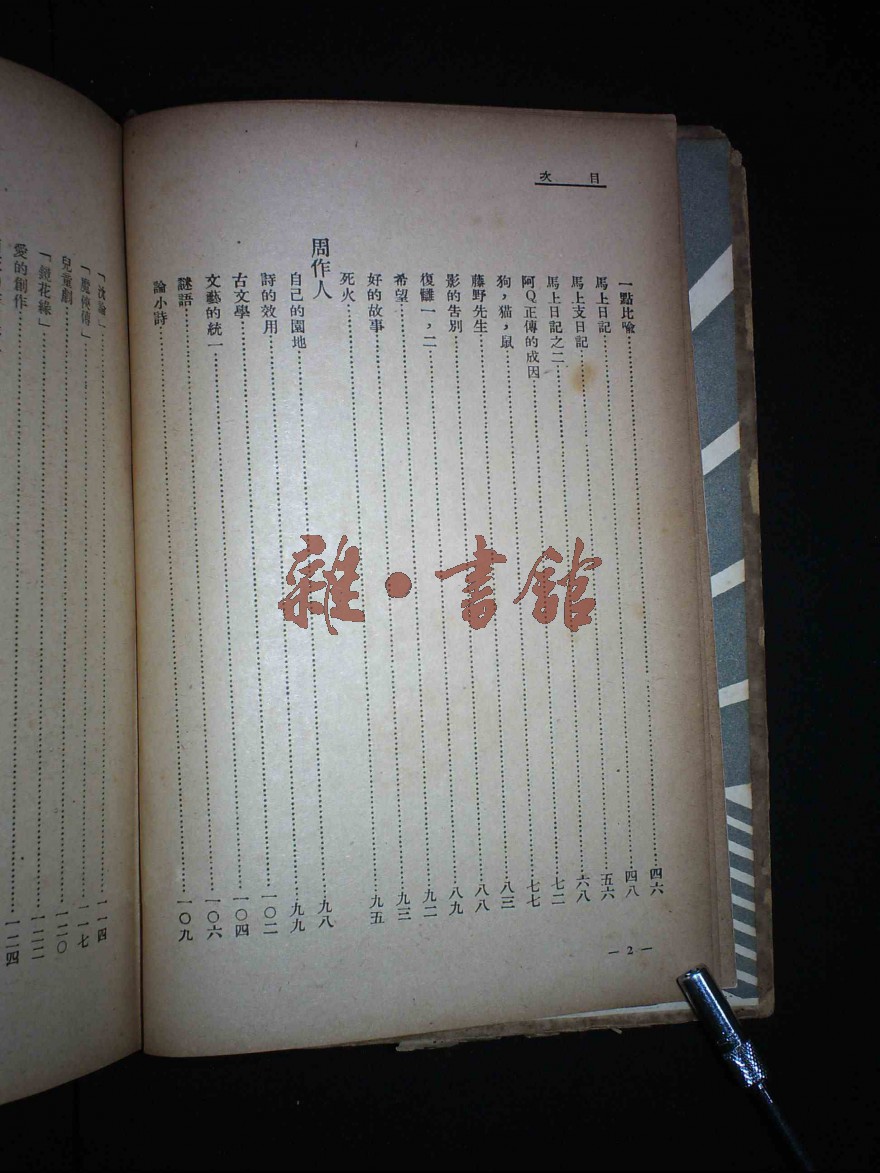 目次
一點比喻……四六
馬上日記……四八
馬上支日記……五六
馬上日記之二……六八
阿Q正傳的成因……七二
狗，猫，鼠……七七
藤野先生……八三
影的告別……八八
復讎一，二……八九
希望……九二
好的故事……九三
死火……九五
周作人
自己的園地……九八
詩的效用……九九
古文學……一〇二
文藝的統一……一〇四
謎語……一〇六
論小詩……一〇九
— 2 —
「沈淪」……一一四
「魔俠傳」……一一七
兒童劇……一二〇
「鏡花緣」……一二二
愛的創作……一二四
雜·書館